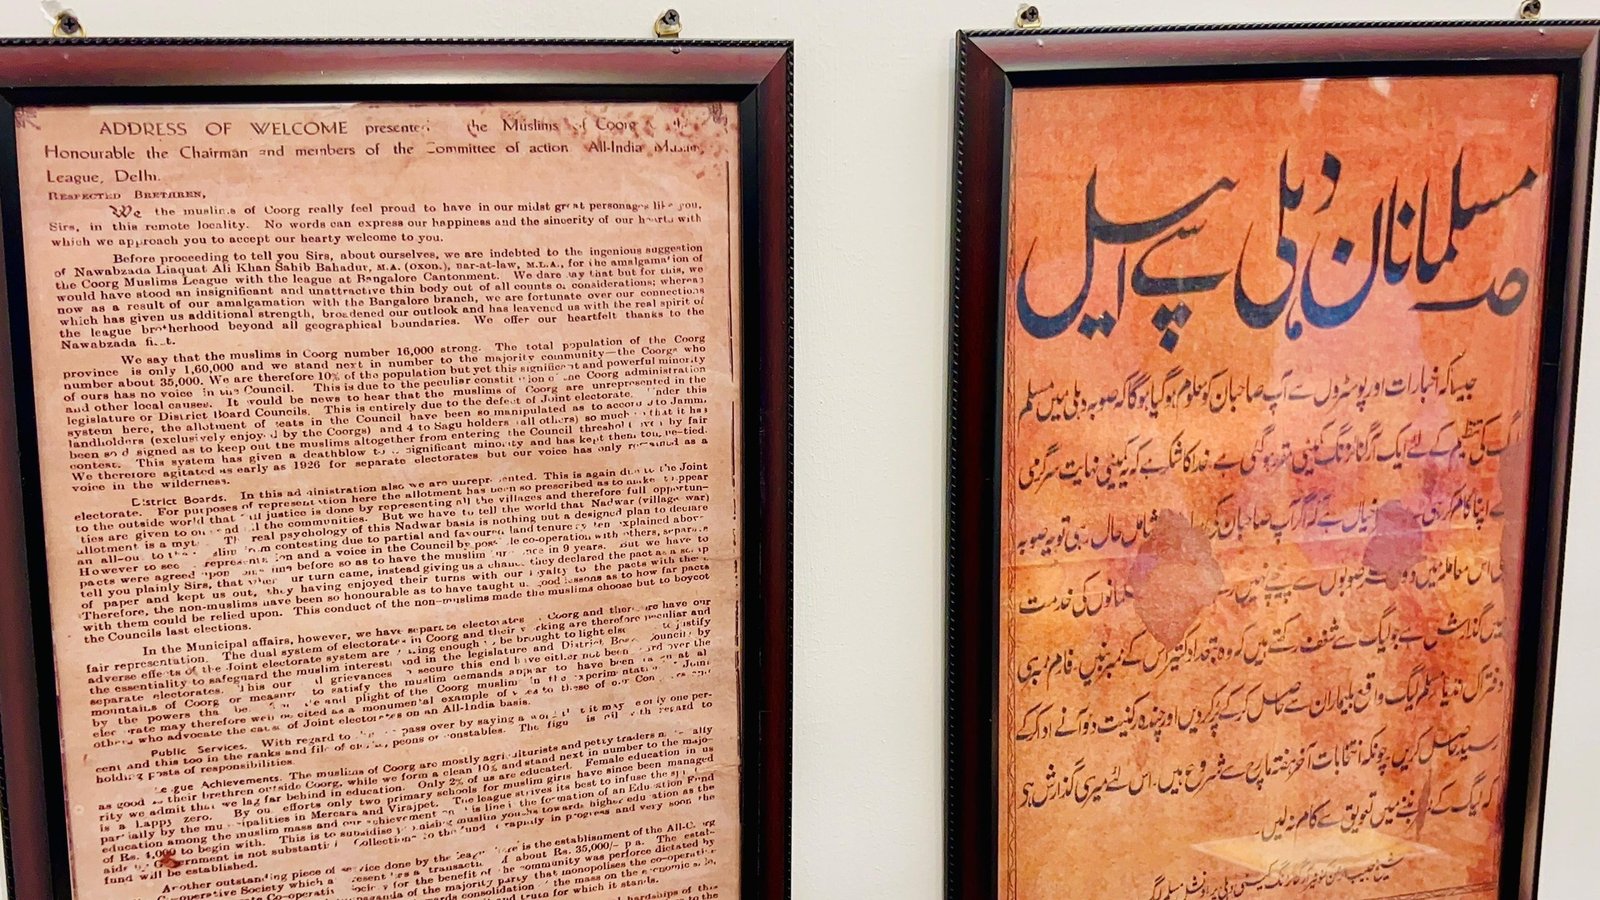 ADDRESS OF WELCOME presented the Muslims of Coorg
Honourable the Chairman and members of the Committee of action All-India Muslim
League, Delhi.
RESPECTED BRETHREN,
We the muslims of Coorg really feel proud to have in our midst great personages like you,
Sirs, in this remote locality. No words can express our happiness and the sincerity of our hearts with
which we approach you to accept our hearty welcome to you.
Before proceeding to tell you Sirs, about ourselves, we are indebted to the ingenious suggestion
of Nawabzada Liaquat Ali Khan Sahib Bahadur, M.A. (OXON.), Bar-at-law, M.L.A., for the amalgamation of
the Coorg Muslims League with the league at Bangalore Cantonment. We dare say that but for this, we
would have stood an insignificant and unattractive thin body out of all counts or considerations; whereas
now as a result of our amalgamation with the Bangalore branch, we are fortunate over our connections
which has given us additional strength, broadened our outlook and has leavened us with the real spirit of
the league brotherhood beyond all geographical boundaries. We offer our heartfelt thanks to the
Nawabzada first.
We say that the muslims in Coorg number 16,000 strong. The total population of the Coorg
province is only 1,60,000 and we stand next in number to the majority community—the Coorgs who
number about 35,000. We are therefore 10% of the population but yet this significant and powerful minority
of ours has no voice in the Council. This is due to the peculiar constitution of the Coorg administration
and other local causes. It would be news to hear that the muslims of Coorg are unrepresented in the
legislature or District Board Councils. This is entirely due to the defect of Joint electorate. Under this
system here, the allotment of seats in the Council have been so manipulated as to accord to Jamma
landholders (exclusively enjoyed by the Coorgs) and 4 to Sagu holders (all others) so much so that it has
been so designed as to keep out the muslims altogether from entering the Council threshold even by fair
contest. This system has given a deathblow to a significant minority and has kept them tongue-tied.
We therefore agitated as early as 1926 for separate electorates but our voice has only remained as a
voice in the wilderness.
District Boards. In this administration also we are unrepresented. This is again due to the Joint
electorate. For purposes of representation here the allotment has been so prescribed as to make it appear
to the outside world that full justice is done by representing all the villages and therefore full opportun-
ties are given to and all the communities. But we have to tell the world that Nadwar (village war)
allotment is a myth. The real psychology of this Nadwar basis is nothing but a designed plan to declare
an all-out to the muslim from contesting due to partial and favoured land tenure system explained above.
However to see representation and a voice in the Council by possible co-operation with others, separate
pacts were agreed upon before so as to have the muslim chance in 9 years. But we have to
tell you plainly Sirs, that when our turn came, instead giving us a chance they declared the pact as a scrap
of paper and kept us out, they having enjoyed their turns with our loyalty to the pacts with them.
Therefore, the non-muslims have been so honourable as to have taught us good lessons as to how far pacts
with them could be relied upon. This conduct of the non-muslims made the muslims choose but to boycott
the Councils last elections.
In the Municipal affairs, however, we have separate electorates in Coorg and therefore have our
fair representation. The dual system of electorates in Coorg and their working are therefore peculiar and
adverse effects of the Joint electorate system are enough to be brought to light else to justify
the essentiality to safeguard the muslim interest and in the legislature and District Board Councils by
separate electorates. This our grievances to secure this end have either not been heard over the
mountains of Coorg or measures to satisfy the muslim demands appear to have been taken at all
by the powers that be. The and plight of the Coorg muslims in the experimentation of Joint
electorate may therefore well be cited as a monumental example of to those of our
others who advocate the cause of Joint electorates on an All-India basis.
Public Services. With regard to pass over by saying a word that it may only one per-
cent and this too in the ranks and file of clerks, peons or constables. The figure is nil with regard to
holding posts of responsibilities.
League Achievements. The muslims of Coorg are mostly agriculturists and petty traders
as good as their brethren outside Coorg, while we form a clean 10% and stand next in number to the majo-
rity we admit that we lag far behind in education. Only 2% of us are educated. Female education in us
is a Lappy zero. By our efforts only two primary schools for muslim girls have since been managed
partially by the municipalities in Mercara and Virajpet. The league strives its best to infuse the spirit
education among the muslim mass and our achievement in this line is the formation of an Education Fund
of Rs. 4,000 to begin with. This is to subsidise promising muslim youths towards higher education as the
aids by Government is not substantial. Collection to the fund is rapidly in progress and very soon the
fund will be established.
Another outstanding piece of service done by the league here is the establishment of the All-Coorg
Co-operative Society which a transaction of about Rs. 35,000/- p a. The estab-
Co-operative Society for the benefit of the community was perforce dictated by
propaganda of the majority party that monopolises the co-operative
towards consolidation of the mass on the economic
and truth for which it stands.
hardships of the
مسلمانان دہلی سے اپیل
جیسا کہ اخبارات اور پوسٹروں سے آپ صاحبان کو معلوم ہو گیا ہو گا کہ صوبہ دہلی میں مسلم
لیگ کی تنظیم کے لئے ایک آرگنائزنگ کمیٹی مقرر ہو گئی ہے خدا کا شکر ہے کہ یہ کمیٹی نہایت سرگرمی
سے اپنا کام کر رہی خیال ہے کہ اگر آپ صاحبان کی شامل حال رہی تو یہ صوبہ
بھی اس معاملہ میں دوسرے صوبوں سے پیچھے نہیں رہے مسلمانوں کی خدمت
میں گذارش ہے جو لیگ سے شغف رکھتے ہیں کہ وہ بتعداد کثیر اس کے ممبر بنیں۔ فارم ممبری
دفتر آل انڈیا مسلم لیگ واقع بلیماران سے حاصل کر کے پُر کریں اور چندہ رکنیت دو آنے ادا کر کے
رسید حاصل کریں چونکہ انتخابات آخر ہفتہ مارچ سے شروع ہیں۔ اس لئے میری گذارش ہے
کہ لیگ کے ممبر بننے میں تعویق سے کام نہ لیں۔